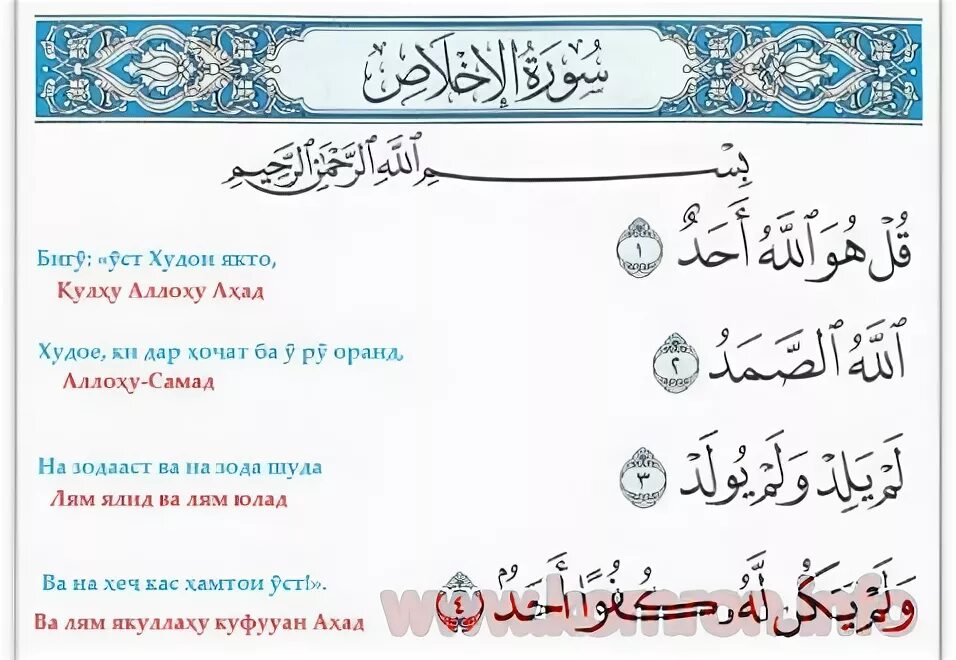 سُورَةُ الإِخْلَاصِ
بِسْمِ ٱللَّهِ ٱلرَّحْمَٰنِ ٱلرَّحِيمِ
قُلْ هُوَ ٱللَّهُ أَحَدٌ ١
Бигӯ: «ӯст Худои якто,
Қулҳу Аллоҳу Аҳад
ٱللَّهُ ٱلصَّمَدُ ٢
Худое, ки дар ҳочат ба ӯ рӯ оранд,
Аллоҳу-Самад
لَمْ يَلِدْ وَلَمْ يُولَدْ ٣
На зодааст ва на зода шуда
Лям ялид ва лям юлад
وَلَمْ يَكُن لَّهُۥ كُفُوًا أَحَدٌۢ ٤
Ва на ҳеҷ кас ҳамтои ӯст!».
Ва лям якуллаҳу куфууан Аҳад